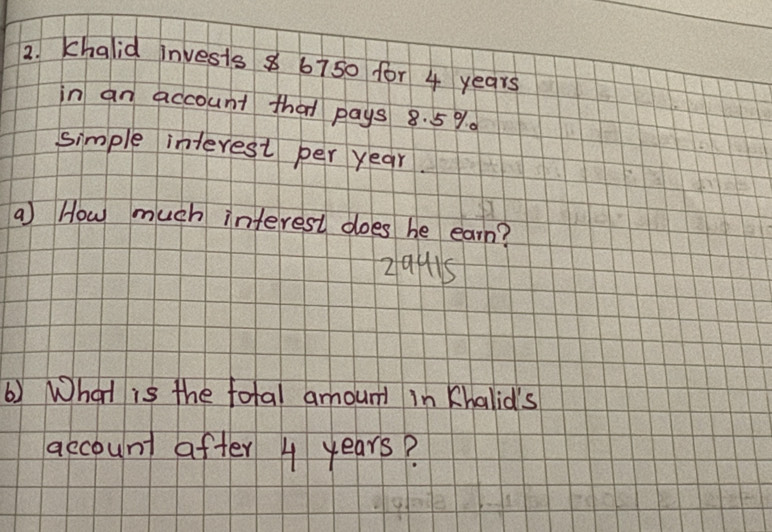 2. Khalid invests $ 6750 for 4 years
in an account that pays 8.5%
simple interest per year.
a) How much interest does he earn?
29415
b) What is the total amount in Khalid's
account after 4 years?